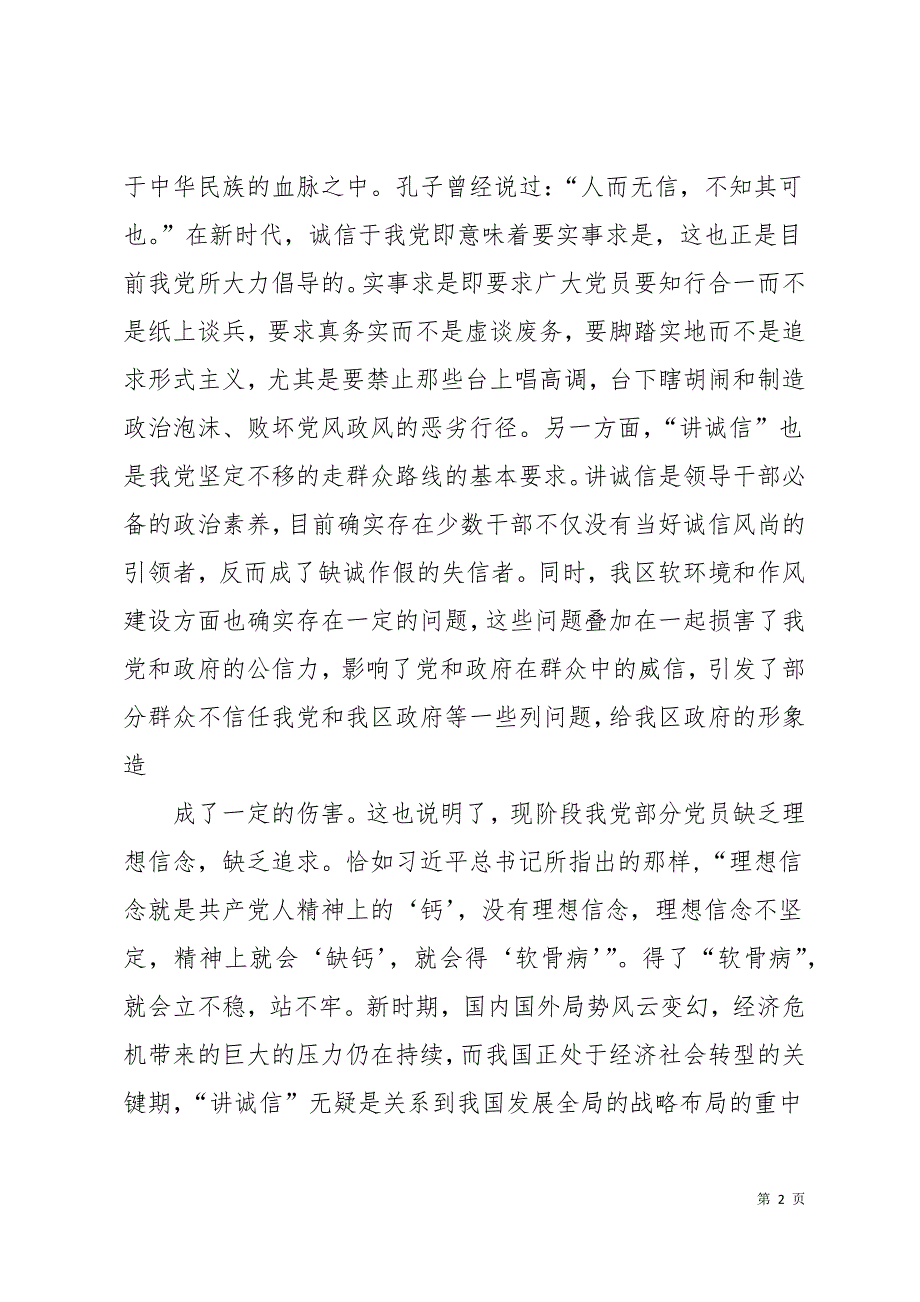 于中华民族的血脉之中。孔子曾经说过：“人而无信，不知其可
也。”在新时代，诚信于我党即意味着要实事求是，这也正是目
前我党所大力倡导的。实事求是即要求广大党员要知行合一而不
是纸上谈兵，要求真务实而不是虚谈废务，要脚踏实地而不是追
求形式主义，尤其是要禁止那些台上唱高调，台下瞎胡闹和制造
政治泡沫、败坏党风政风的恶劣行径。另一方面，“讲诚信”也
是我党坚定不移的走群众路线的基本要求。讲诚信是领导干部必
备的政治素养，目前确实存在少数干部不仅没有当好诚信风尚的
引领者，反而成了缺诚作假的失信者。同时，我区软环境和作风
建设方面也确实存在一定的问题，这些问题叠加在一起损害了我
党和政府的公信力，影响了党和政府在群众中的威信，引发了部
分群众不信任我党和我区政府等一些列问题，给我区政府的形象
造
成了一定的伤害。这也说明了，现阶段我党部分党员缺乏理
想信念，缺乏追求。恰如习近平总书记所指出的那样，“理想信
念就是共产党人精神上的‘钙’，没有理想信念，理想信念不坚
定，精神上就会‘缺钙’，就会得‘软骨病’”。得了“软骨病”，
就会立不稳，站不牢。新时期，国内国外局势风云变幻，经济危
机带来的巨大的压力仍在持续，而我国正处于经济社会转型的关
键期，“讲诚信”无疑是关系到我国发展全局的战略布局的重中
第 2 页